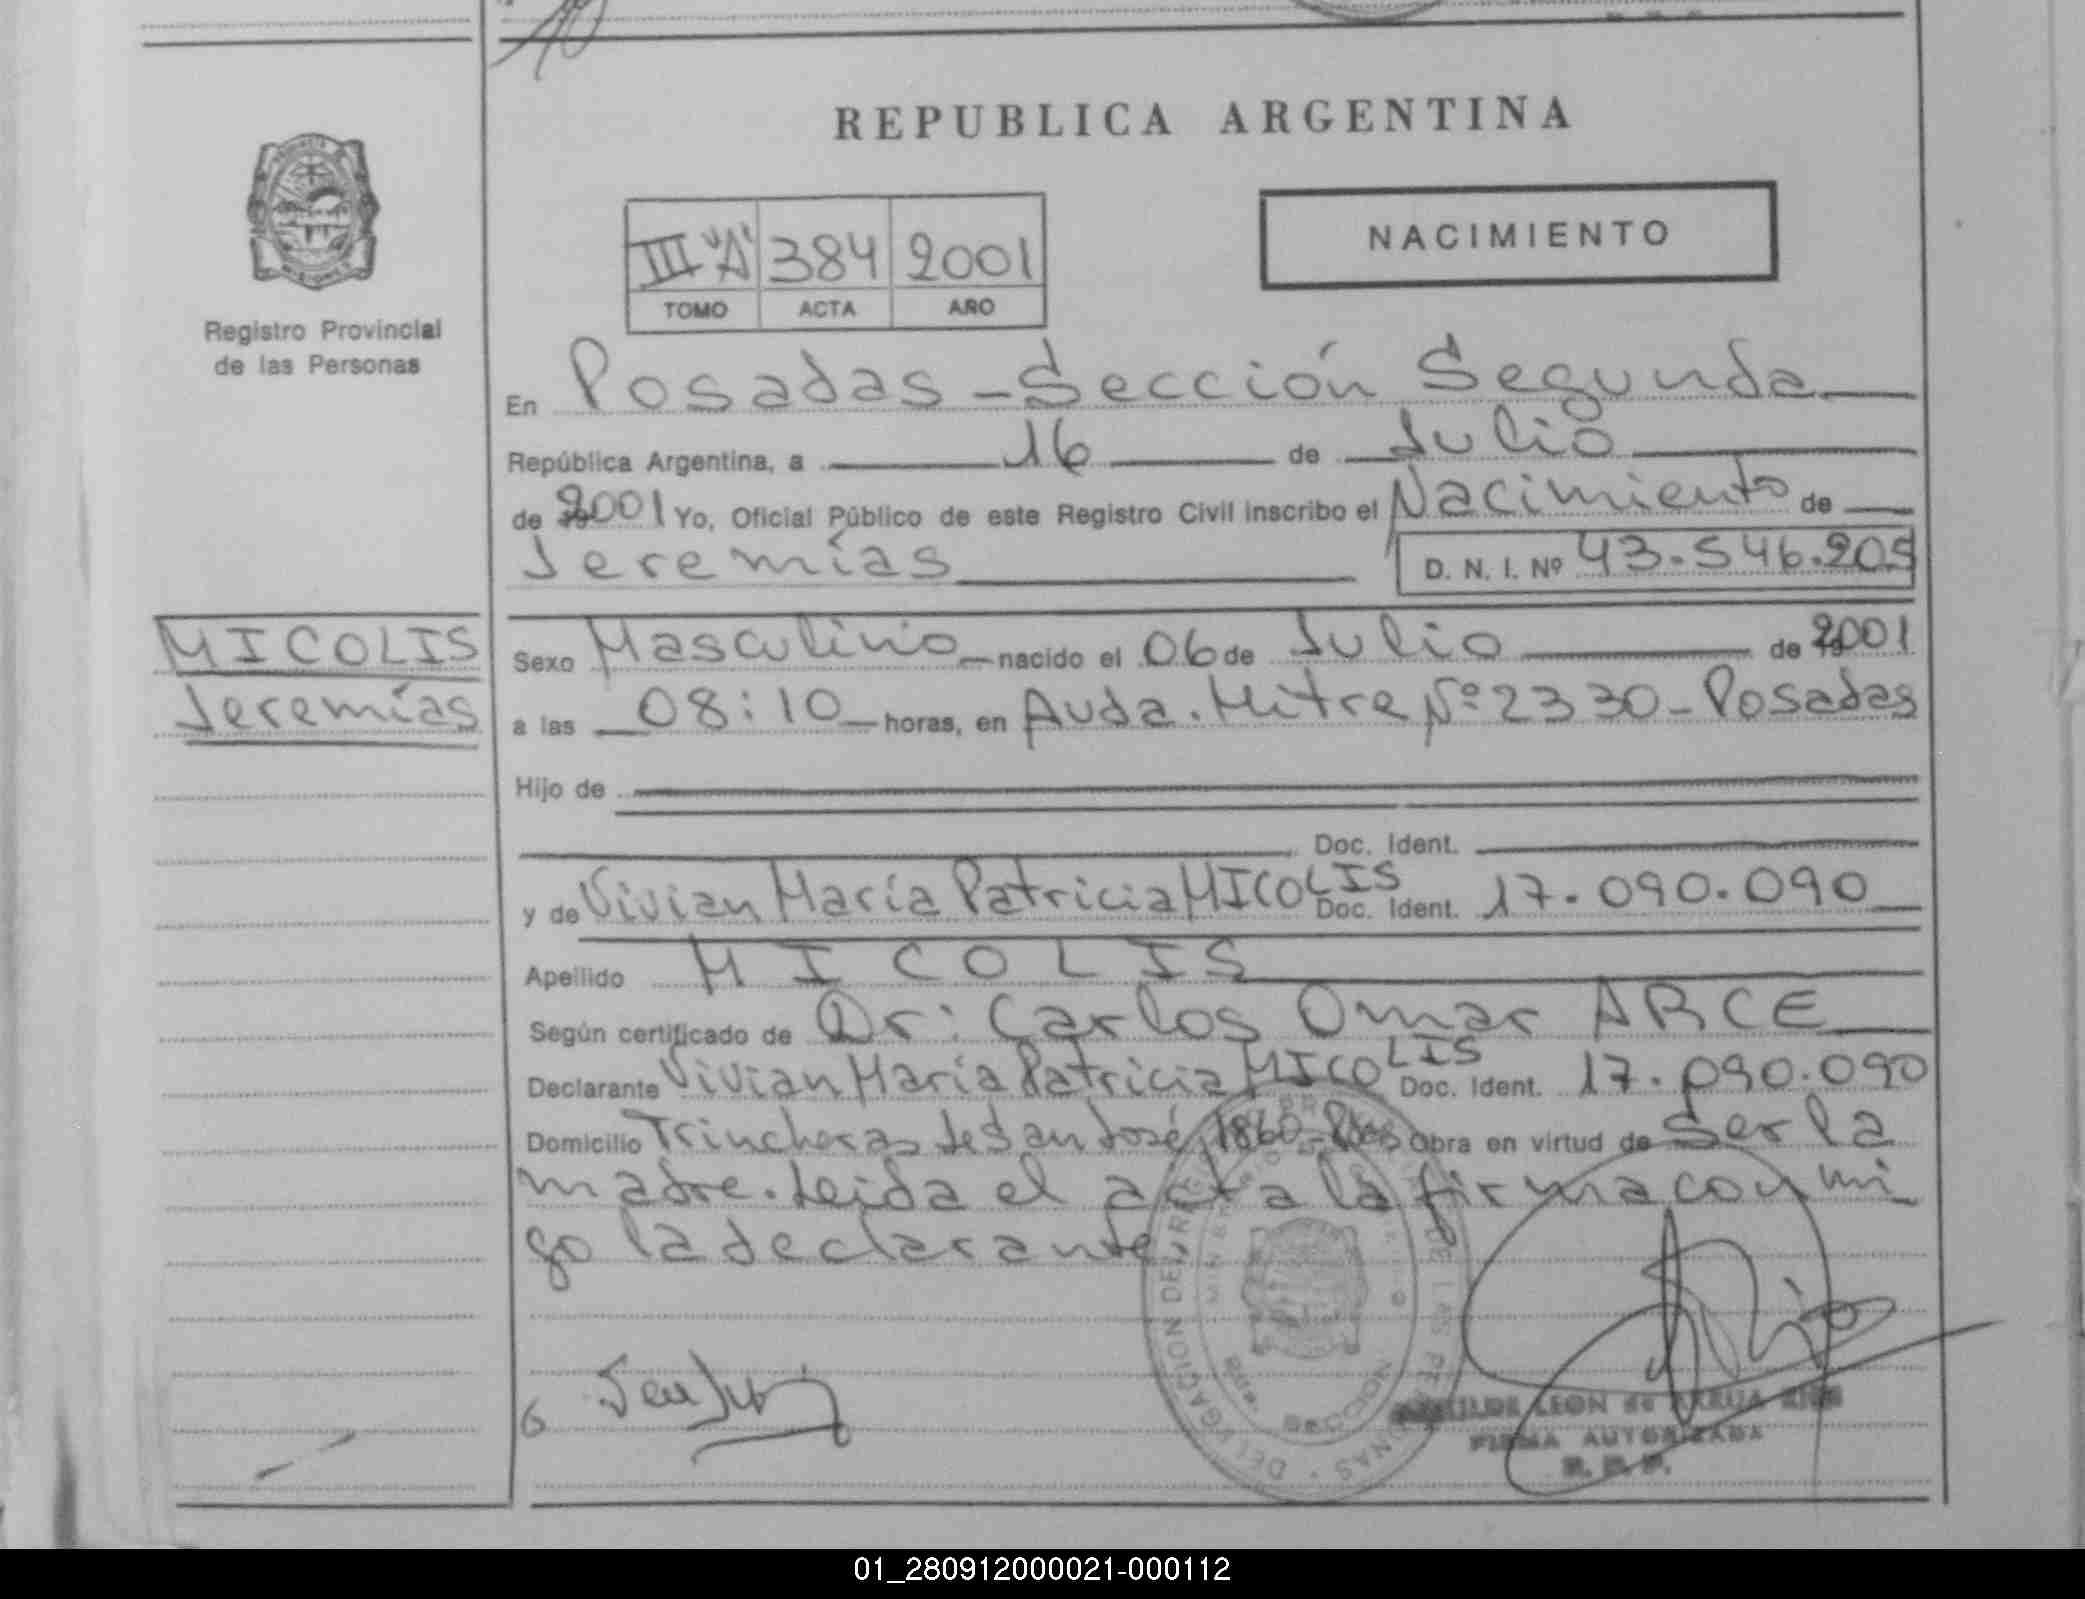 REPUBLICA ARGENTINA
III "A" 384 2001
TOMO ACTA AÑO
NACIMIENTO
Registro Provincial
de las Personas
En Posadas - Sección Segunda
República Argentina, a 16 de Julio
de 2001 Yo, Oficial Público de este Registro Civil inscribo el Nacimiento de
Jeremías D. N. I. Nº 43.546.205
MICOLIS
Jeremías
Sexo Masculino nacido el 06 de Julio de 2001
a las 08:10 horas, en Avda. Mitre Nº 2330 - Posadas
Hijo de
Doc. Ident.
y de Vivian María Patricia MICOLIS Doc. Ident. 17.090.090
Apellido MICOLIS
Según certificado de Dr: Carlos Omar ARCE
Declarante Vivian María Patricia MICOLIS Doc. Ident. 17.090.090
Domicilio Trincheras de San José 1860 - Obra en virtud de Ser la
madre. Leida el acta la firma con mi
go la declarante.
LEON de
FIRMA AUTORIZADA
R. P. P.
01_280912000021-000112